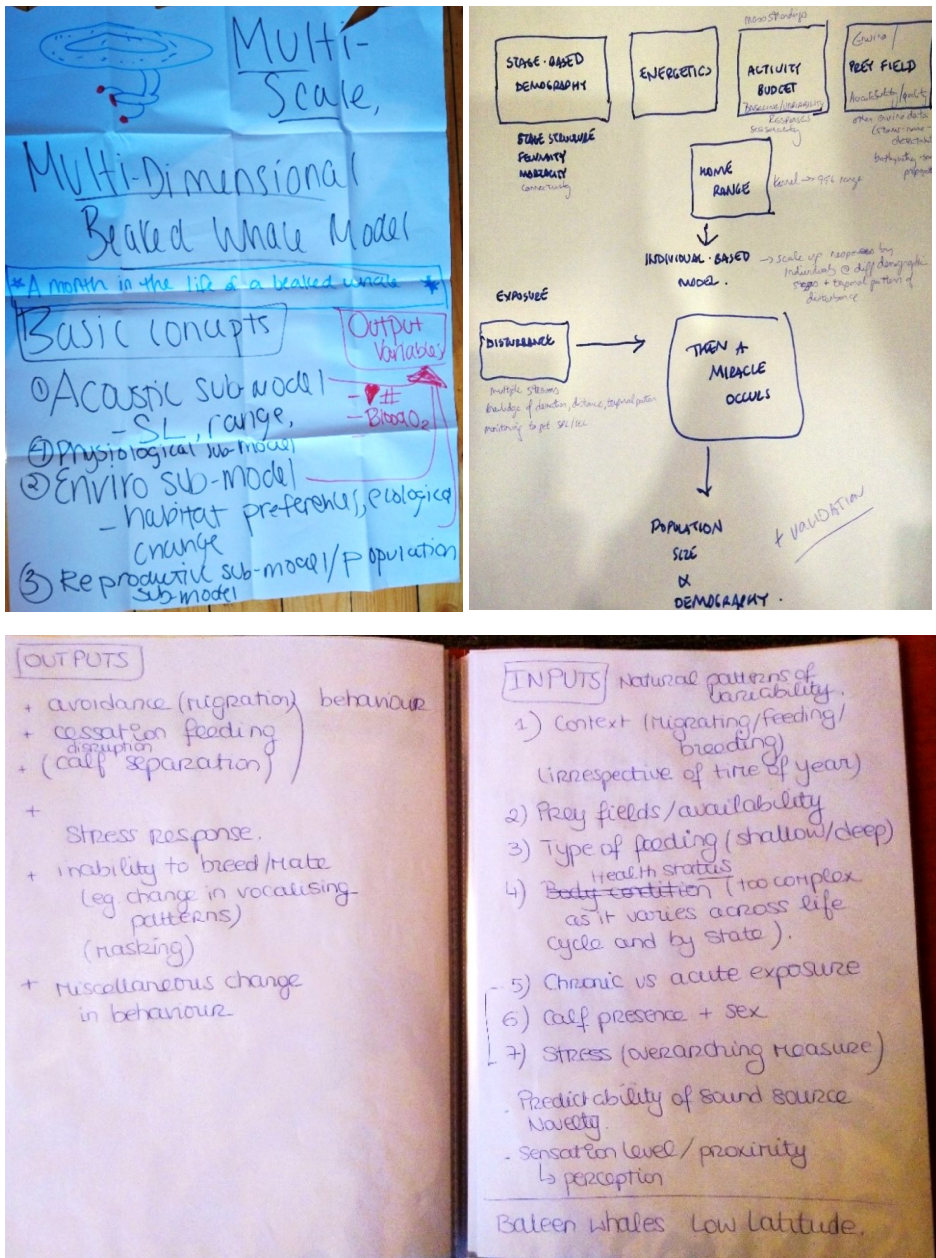 Multi-
Scale,
Multi-Dimensional
Beaked Whale Model
*A month in the life of a beaked whale *
Basic concepts
Output
Variables
① Acoustic sub-model
- SL, range,
④ Physiological sub-model
② Enviro sub-model
- habitat preferences, ecological
change
③ Reproductive sub-model/population
sub-model
- #
- Blood O₂
STAGE-BASED
DEMOGRAPHY
STAGE STRUCTURE
FECUNDITY
MORTALITY
Connectivity
ENERGETICS
ACTIVITY
BUDGET
Baseline/variability
Responses
Seasonality
Enviro/
PREY FIELD
Availability/quality
other enviro data
HOME
RANGE
Kernel → 95% range
INDIVIDUAL-BASED
MODEL.
→ scale up responses by
individuals @ diff demographic
stages + temporal patterns of
disturbance
EXPOSURE
DISTURBANCE
multiple stressors
knowledge of duration, distance, temporal pattern
monitoring to get SPL/SEL
THEN A
MIRACLE
OCCURS
POPULATION
SIZE
&
DEMOGRAPHY.
+ VALIDATION
OUTPUTS
+ avoidance (migration) behaviour
+ cessation feeding
disruption
+ (calf separation)
+
Stress Response.
+ inability to breed/mate
(eg change in vocalising
patterns)
(masking)
+ miscellaneous change
in behaviour
INPUTS Natural patterns of
variability.
1) Context (migrating/feeding/
breeding)
(irrespective of time of year)
2) Prey fields/availability
3) Type of feeding (shallow/deep)
Health status
4) Body condition (too complex
as it varies across life
cycle and by state).
5) Chronic vs acute exposure
6) Calf presence + sex
7) Stress (overarching measure)
. Predictability of sound source
Novelty.
. sensation level/proximity
↳ perception
Baleen whales Low latitude.